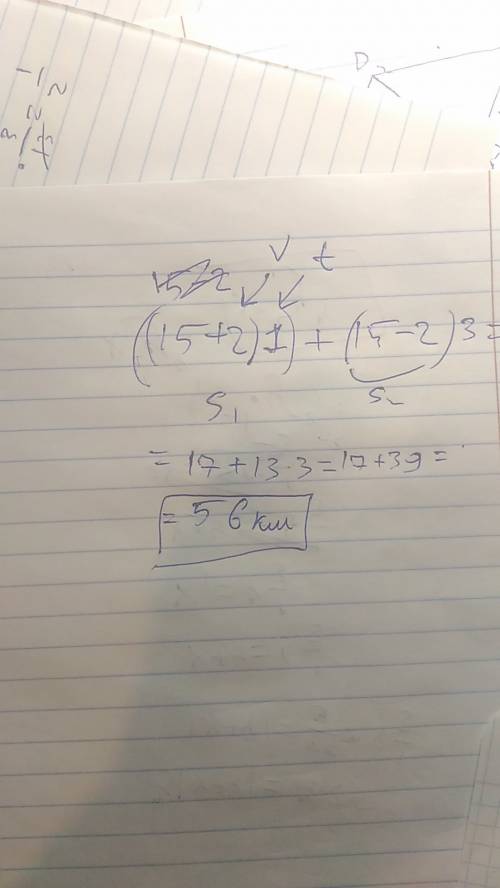 D
V t
((15+2)1) + (15-2)3 =
S₁ S₂
= 17 + 13 · 3 = 17 + 39 =
= 56 км